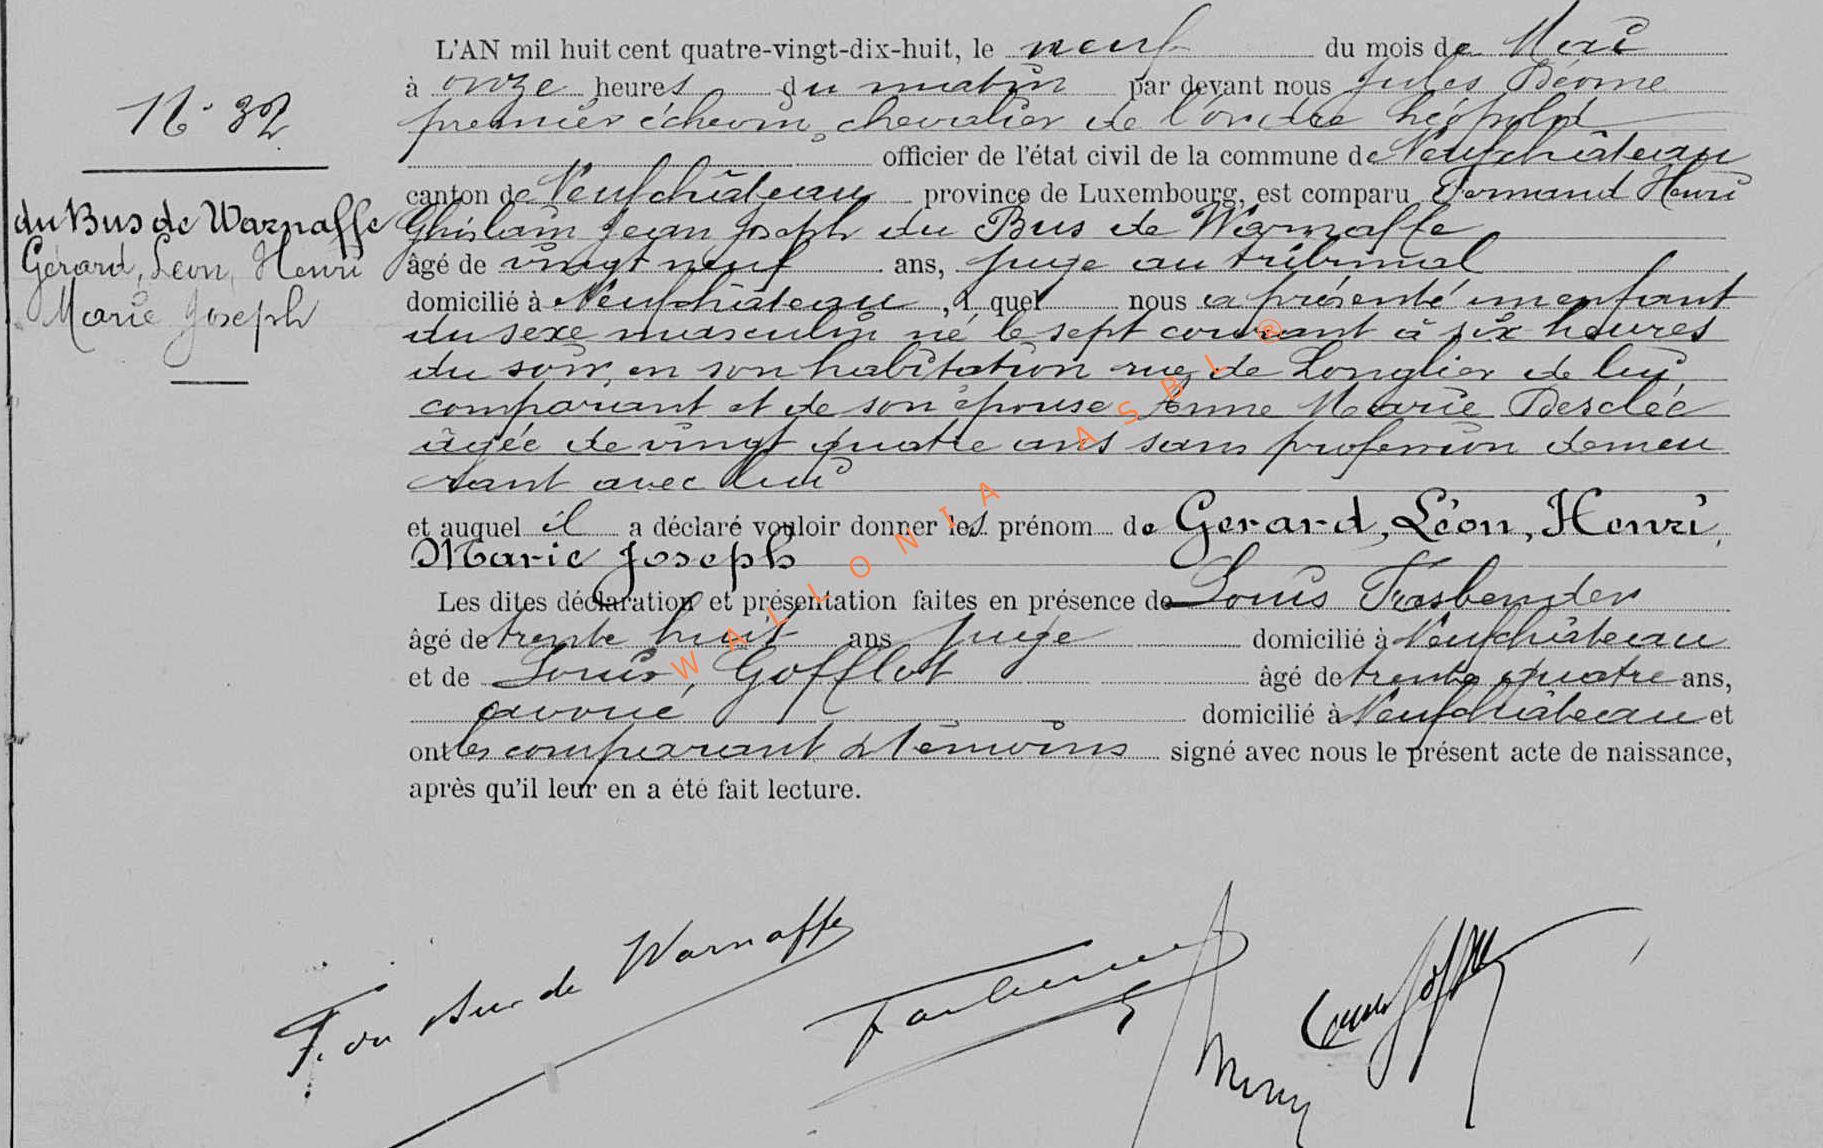 N° 32
du Bus de Warnaffe
Gérard, Léon, Henri
Marie Joseph
L'AN mil huit cent quatre-vingt-dix-huit, le neuf du mois de Mai
à onze heures du matin par devant nous Jules
premier échevin, chevalier de l'ordre Léopold
officier de l'état civil de la commune de Neufchâteau
canton de Neufchâteau province de Luxembourg, est comparu Fernand Henri
Ghislain Jean Joseph du Bus de Warnaffe
âgé de vingt neuf ans, juge au tribunal
domicilié à Neufchâteau, l quel nous a présenté un enfant
du sexe masculin né le sept courant à six heures
du soir, en son habitation rue de Longlier de lui
comparant et de son épouse Anne Marie Desclée
âgée de vingt quatre ans sans profession demeu
rant avec lui
et auquel il a déclaré vouloir donner les prénom de Gerard, Léon, Henri,
Marie Joseph
Les dites déclaration et présentation faites en présence de Louis Fasbender
âgé de trente huit ans juge domicilié à Neufchâteau
et de Louis, Gofflot âgé de trente quatre ans,
avoué domicilié à Neufchâteau et
ont les comparant et témoins signé avec nous le présent acte de naissance,
après qu'il leur en a été fait lecture.
F. du Bus de Warnaffe
WALLONIA ASBL ®